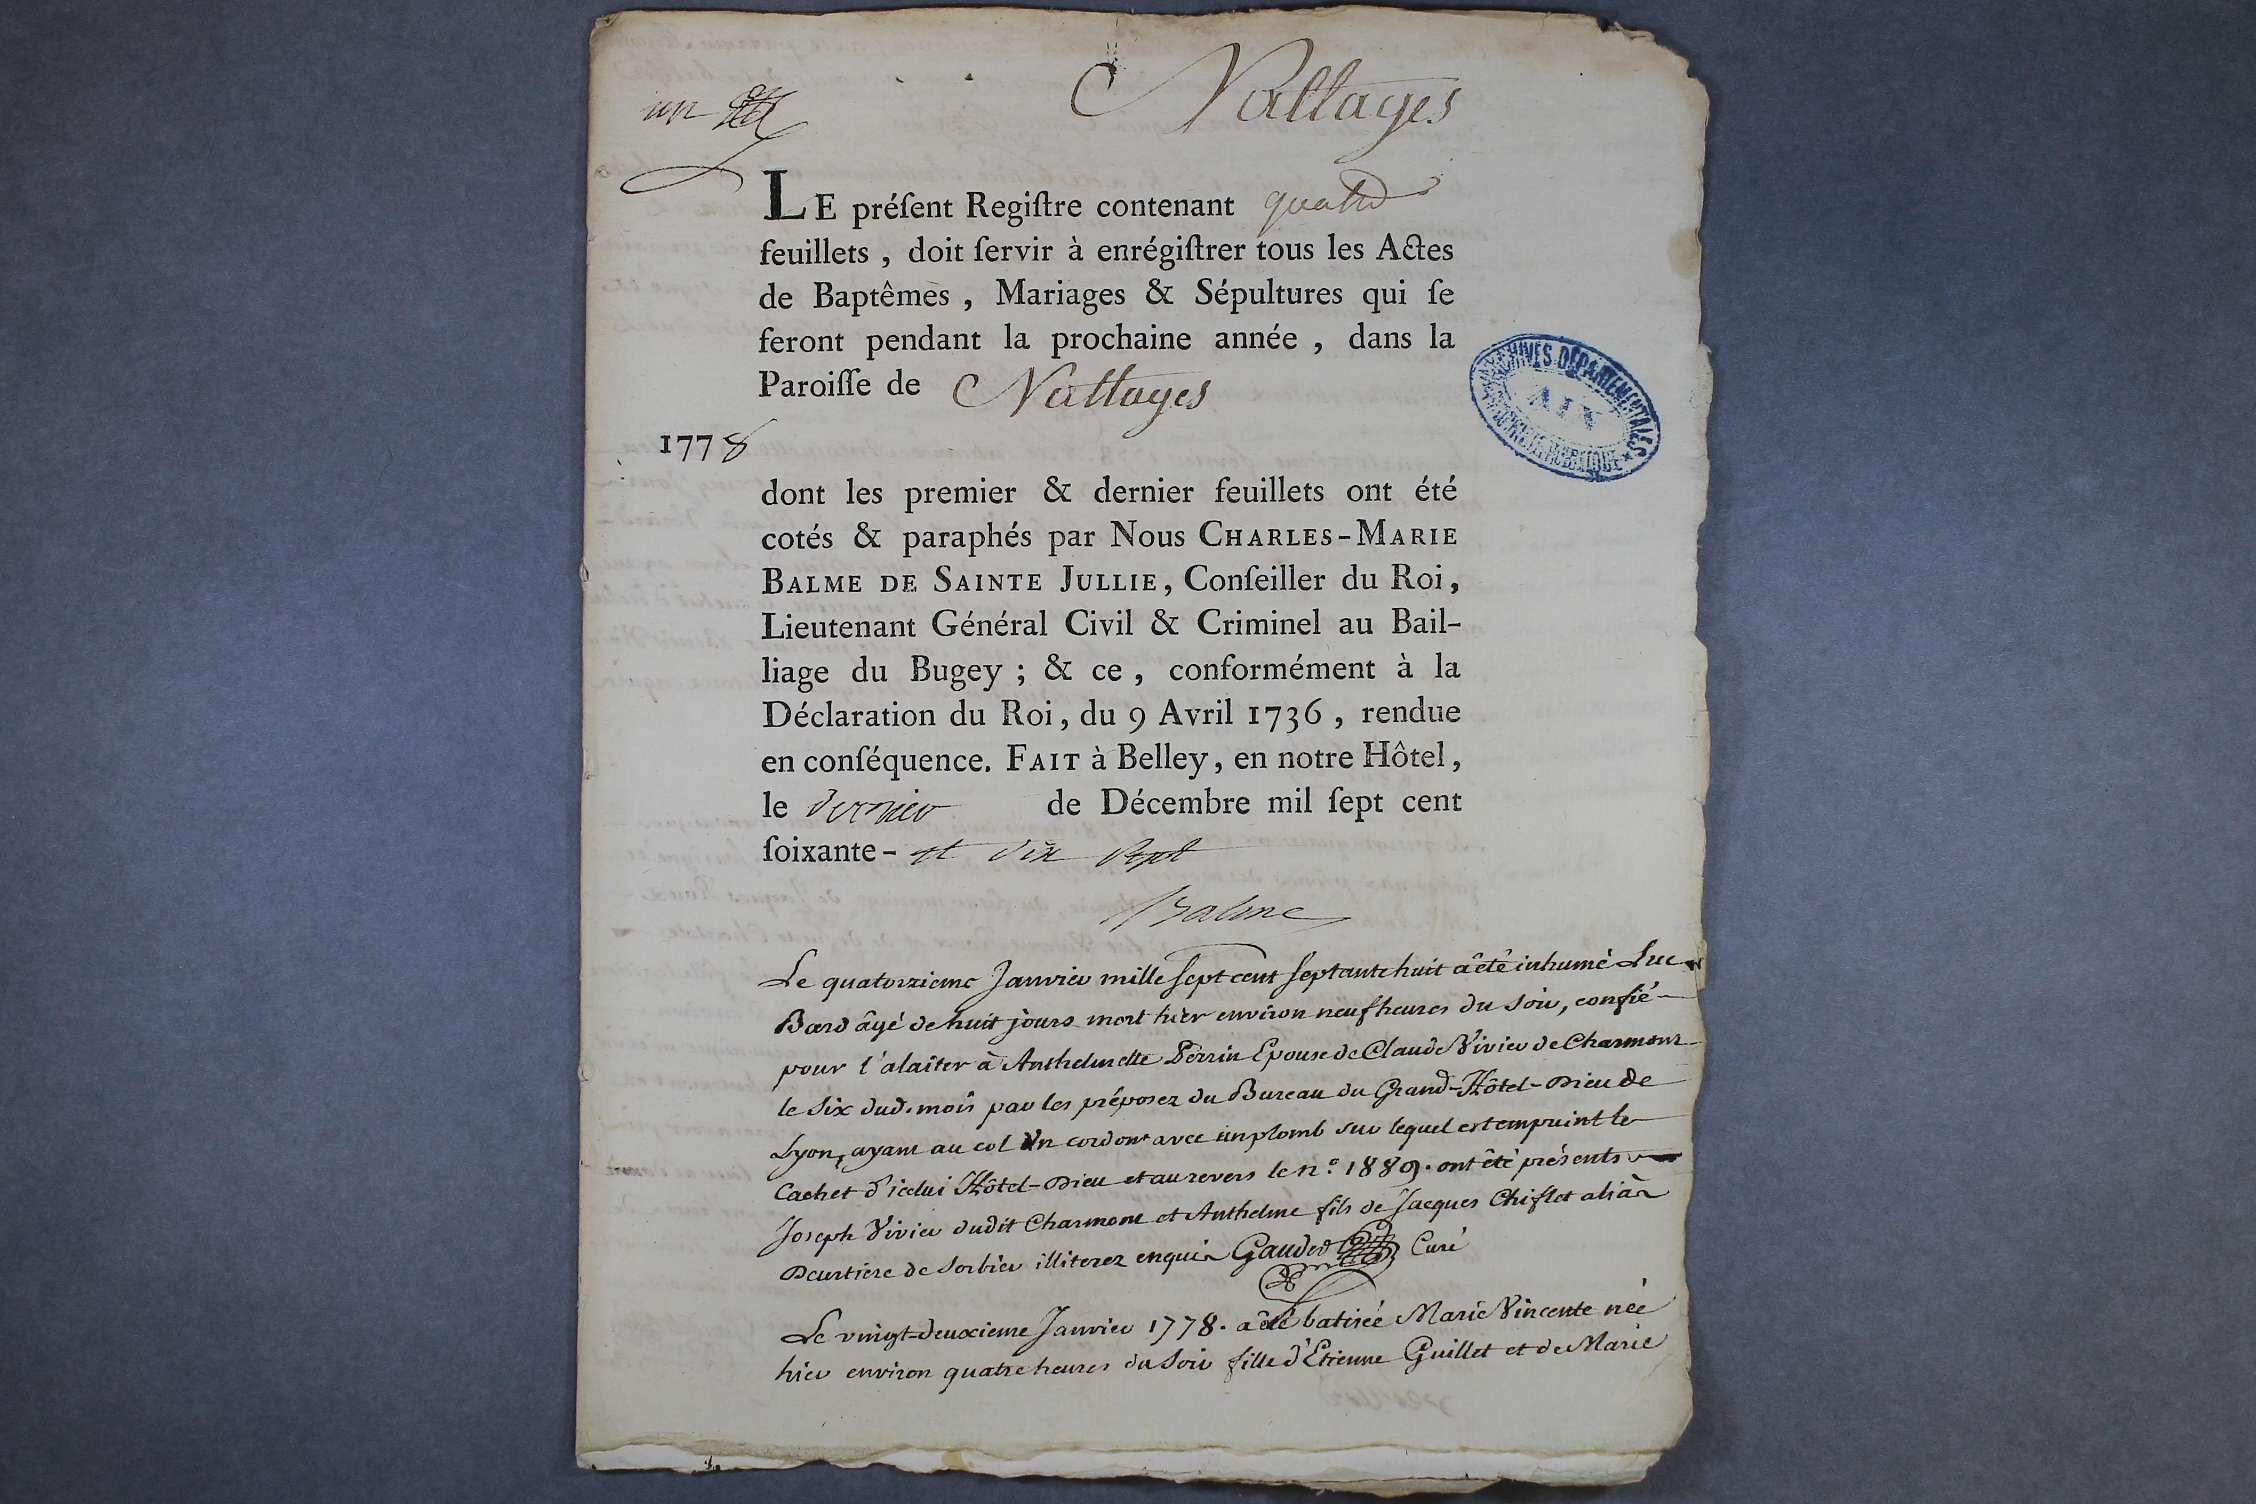 un
Nattages
LE préſent Regiſtre contenant quatre
feuillets , doit ſervir à enrégiſtrer tous les Actes
de Baptêmes , Mariages & Sépultures qui ſe
feront pendant la prochaine année , dans la
Paroiſſe de Nattages
ARCHIVES DÉPARTEMENTALES
AIN
1778
dont les premier & dernier feuillets ont été
cotés & paraphés par Nous CHARLES-MARIE
BALME DE SAINTE JULLIE, Conſeiller du Roi,
Lieutenant Général Civil & Criminel au Bail-
liage du Bugey ; & ce , conformément à la
Déclaration du Roi, du 9 Avril 1736 , rendue
en conſéquence. FAIT à Belley, en notre Hôtel,
le dernier de Décembre mil ſept cent
ſoixante- et dix sept
Balme
Le quatorzieme Janvier mille sept cent septante huit a êté inhumé Luc
Bard âgé de huit jours mort hier environ neuf heures du soir, confié
pour l'alaiter à Anthelmette Perrin Epouse de Claude Vivier de Charmont
le six dud. mois par les préposez du Bureau du Grand-Hôtel-Dieu de
Lyon, ayant au col un cordon avec un plomb sur lequel est empruint le
Cachet d'icelui Hôtel-Dieu et au revers le n.° 1889. ont êté présents
Joseph Vivier dudit Charmont et Anthelme fils de Jacques Chiflet aliàs
de Sorbier illiterez enquis Gaudet Curé
Le vingt-deuxieme Janvier 1778. a êté batisée Marie Vincente née
hier environ quatre heures du Soir fille d'Etienne Guillet et de Marie